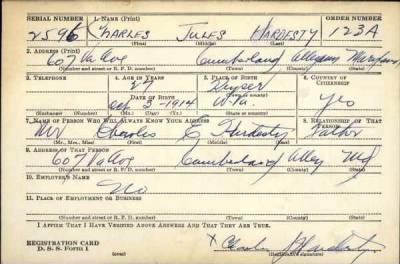 SERIAL NUMBER 1. NAME (Print) ORDER NUMBER
2596 CHARLES JULES HARDESTY 123A
(First) (Middle) (Last)
2. ADDRESS (Print)
607 Cumberland Allegany Maryland
(Number and street or R. F. D. number) (Town) (County) (State)
3. TELEPHONE 4. AGE IN YEARS 5. PLACE OF BIRTH 6. COUNTRY OF CITIZENSHIP
27 Keyser
DATE OF BIRTH (Town or county)
3-1914 W. Va.
(Exchange) (No.) (Mo.) (Day) (Yr.) (State or country)
7. NAME OF PERSON WHO WILL ALWAYS KNOW YOUR ADDRESS 8. RELATIONSHIP OF THAT PERSON
Mr Charles E Hardesty Father
(Mr., Mrs., Miss) (First) (Middle) (Last)
9. ADDRESS OF THAT PERSON
607 Cumberland Alleg Md
(Number and street or R. F. D. number) (Town) (County) (State)
10. EMPLOYER'S NAME
No
11. PLACE OF EMPLOYMENT OR BUSINESS
(Number and street or R. F. D. number) (Town) (County) (State)
I AFFIRM THAT I HAVE VERIFIED ABOVE ANSWERS AND THAT THEY ARE TRUE.
REGISTRATION CARD
D. S. S. Form 1 (over) X Charles J Hardesty
(Registrant's signature)